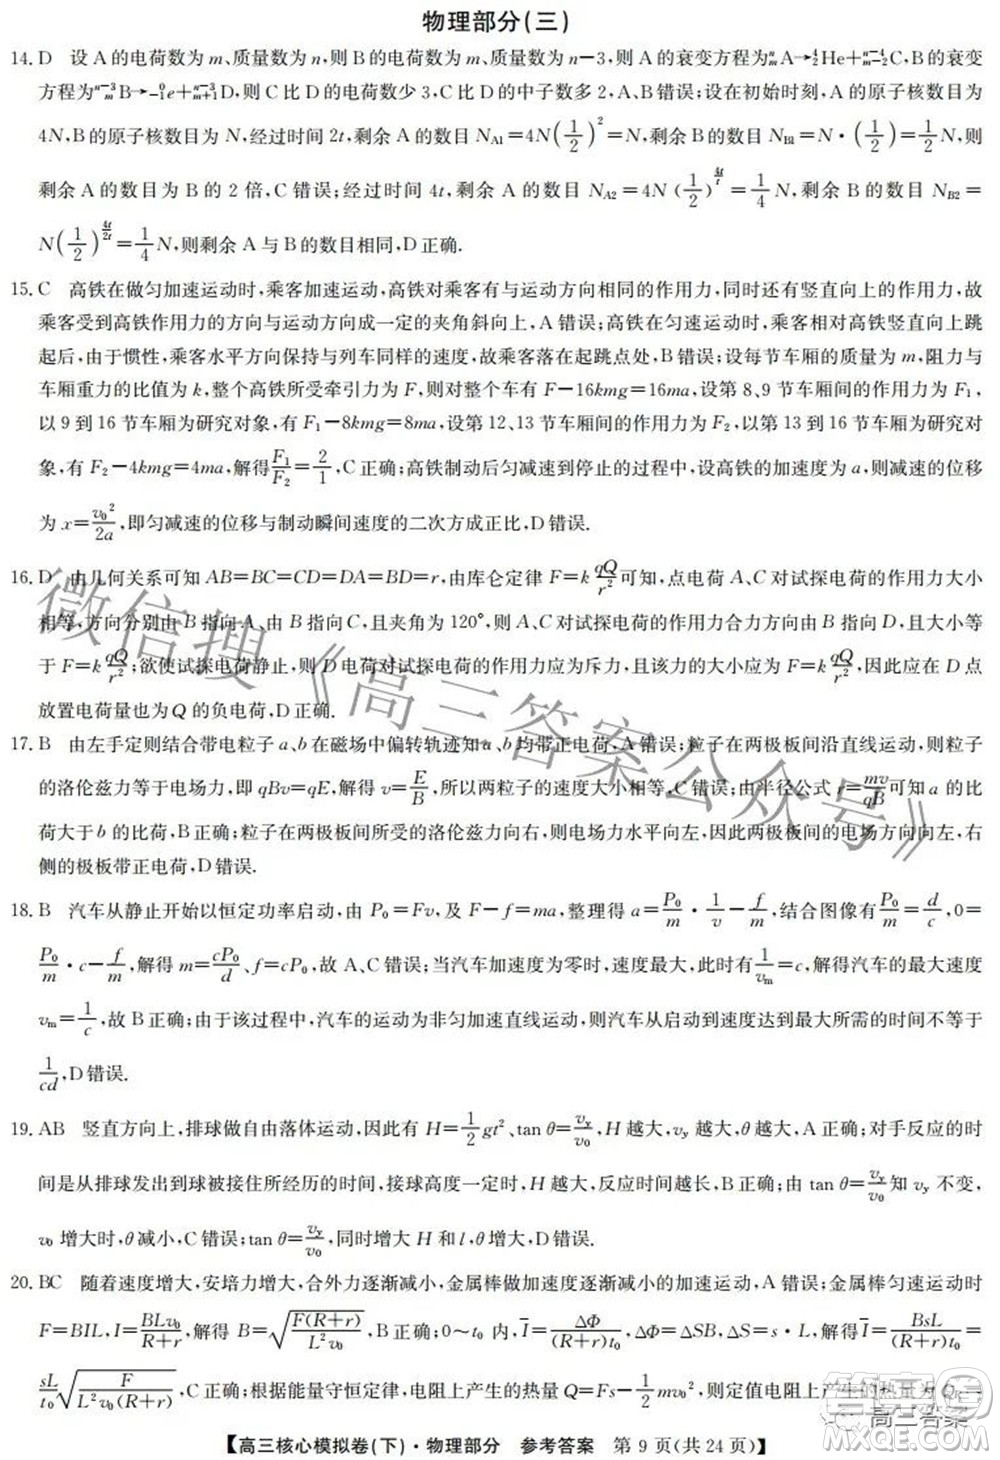 物理部分(三)
14. D 设 A 的电荷数为 m、质量数为 n,则 B 的电荷数为 m、质量数为 n−3,则 A 的衰变方程为ⁿₘA→⁴₂He+ⁿ⁻⁴ₘ₋₂C,B 的衰变
方程为ⁿ⁻³ₘB→⁰₋₁e+ⁿ⁻³ₘ₊₁D,则 C 比 D 的电荷数少 3,C 比 D 的中子数多 2,A、B 错误;设在初始时刻,A 的原子核数目为
4N,B 的原子核数目为 N,经过时间 2t,剩余 A 的数目 N_A1=4N(1/2)²=N,剩余 B 的数目 N_B1=N·(1/2)=1/2N,则
剩余 A 的数目为 B 的 2 倍,C 错误;经过时间 4t,剩余 A 的数目 N_A2=4N(1/2)^(4t/t)=1/4N,剩余 B 的数目 N_B2=
N(1/2)^(4t/2t)=1/4N,则剩余 A 与 B 的数目相同,D 正确.
15. C 高铁在做匀加速运动时,乘客加速运动,高铁对乘客有与运动方向相同的作用力,同时还有竖直向上的作用力,故
乘客受到高铁作用力的方向与运动方向成一定的夹角斜向上,A 错误;高铁在匀速运动时,乘客相对高铁竖直向上跳
起后,由于惯性,乘客水平方向保持与列车同样的速度,故乘客落在起跳点处,B 错误;设每节车厢的质量为 m,阻力与
车厢重力的比值为 k,整个高铁所受牵引力为 F,则对整个车有 F−16kmg=16ma,设第 8、9 节车厢间的作用力为 F₁,
以 9 到 16 节车厢为研究对象,有 F₁−8kmg=8ma,设第 12、13 节车厢间的作用力为 F₂,以第 13 到 16 节车厢为研究对
象,有 F₂−4kmg=4ma,解得F₁/F₂=2/1,C 正确;高铁制动后匀减速到停止的过程中,设高铁的加速度为 a,则减速的位移
为 x=v₀²/2a,即匀减速的位移与制动瞬间速度的二次方成正比,D 错误.
16. D 由几何关系可知 AB=BC=CD=DA=BD=r,由库仑定律 F=k qQ/r²可知,点电荷 A、C 对试探电荷的作用力大小
相等,方向分别由 B 指向 A、由 B 指向 C,且夹角为 120°,则 A、C 对试探电荷的作用力合力方向由 B 指向 D,且大小等
于 F=k qQ/r²;欲使试探电荷静止,则 D 电荷对试探电荷的作用力应为斥力,且该力的大小应为 F=k qQ/r²,因此应在 D 点
放置电荷量也为 Q 的负电荷,D 正确.
17. B 由左手定则结合带电粒子 a、b 在磁场中偏转轨迹知 a、b 均带正电荷,A 错误;粒子在两极板间沿直线运动,则粒子
的洛伦兹力等于电场力,即 qBv=qE,解得 v=E/B,所以两粒子的速度大小相等,C 错误;由半径公式 r=mv/qB可知 a 的比
荷大于 b 的比荷,B 正确;粒子在两极板间所受的洛伦兹力向右,则电场力水平向左,因此两极板间的电场方向向左,右
侧的极板带正电荷,D 错误.
18. B 汽车从静止开始以恒定功率启动,由 P₀=Fv,及 F−f=ma,整理得 a=P₀/m·1/v−f/m,结合图像有P₀/m=d/c,0=
P₀/m·c−f/m,解得 m=cP₀/d、f=cP₀,故 A、C 错误;当汽车加速度为零时,速度最大,此时有1/vₘ=c,解得汽车的最大速度
vₘ=1/c,故 B 正确;由于该过程中,汽车的运动为非匀加速直线运动,则汽车从启动到速度达到最大所需的时间不等于
1/cd,D 错误.
19. AB 竖直方向上,排球做自由落体运动,因此有 H=1/2gt²、tan θ=v_y/v₀,H 越大,v_y 越大,θ 越大,A 正确;对手反应的时
间是从排球发出到球被接住所经历的时间,接球高度一定时,H 越大,反应时间越长,B 正确;由 tan θ=v_y/v₀知 v_y 不变,
v₀ 增大时,θ 减小,C 错误;tan θ=v_y/v₀,同时增大 H 和 l,θ 可能增大,D 错误.
20. BC 随着速度增大,安培力增大,合外力逐渐减小,金属棒做加速度逐渐减小的加速运动,A 错误;金属棒匀速运动时
F=BIL,I=BLv₀/(R+r),解得 B=√(F(R+r)/L²v₀),B 正确;0～t₀ 内,I̅=ΔΦ/((R+r)t₀),ΔΦ=ΔSB,ΔS=s·L,解得 I̅=BsL/((R+r)t₀)=
sL/t₀√(F/L²v₀(R+r)),C 正确;根据能量守恒定律,电阻上产生的热量 Q=Fs−1/2mv₀²,则定值电阻上产生的热量为 Q_R=
【高三核心模拟卷(下)·物理部分 参考答案 第 9 页(共 24 页)】
微信搜《高三答案公众号》
高三答案